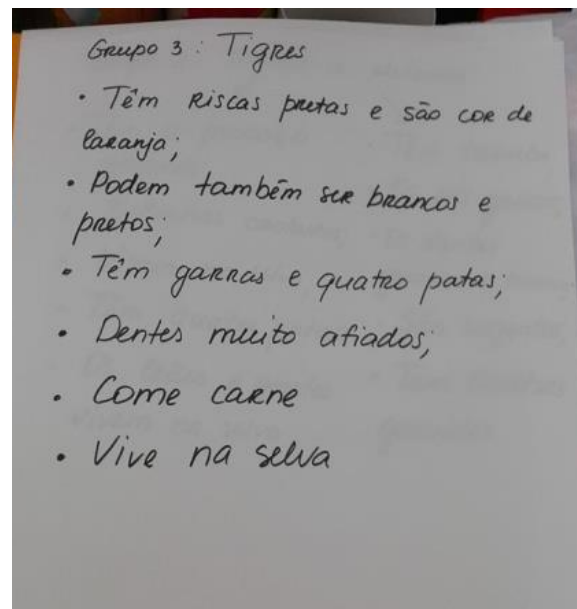 Grupo 3 : Tigres
• Têm riscas pretas e são cor de
laranja;
• Podem também ser brancos e
pretos;
• Têm garras e quatro patas;
• Dentes muito afiados;
• Come carne
• Vive na selva